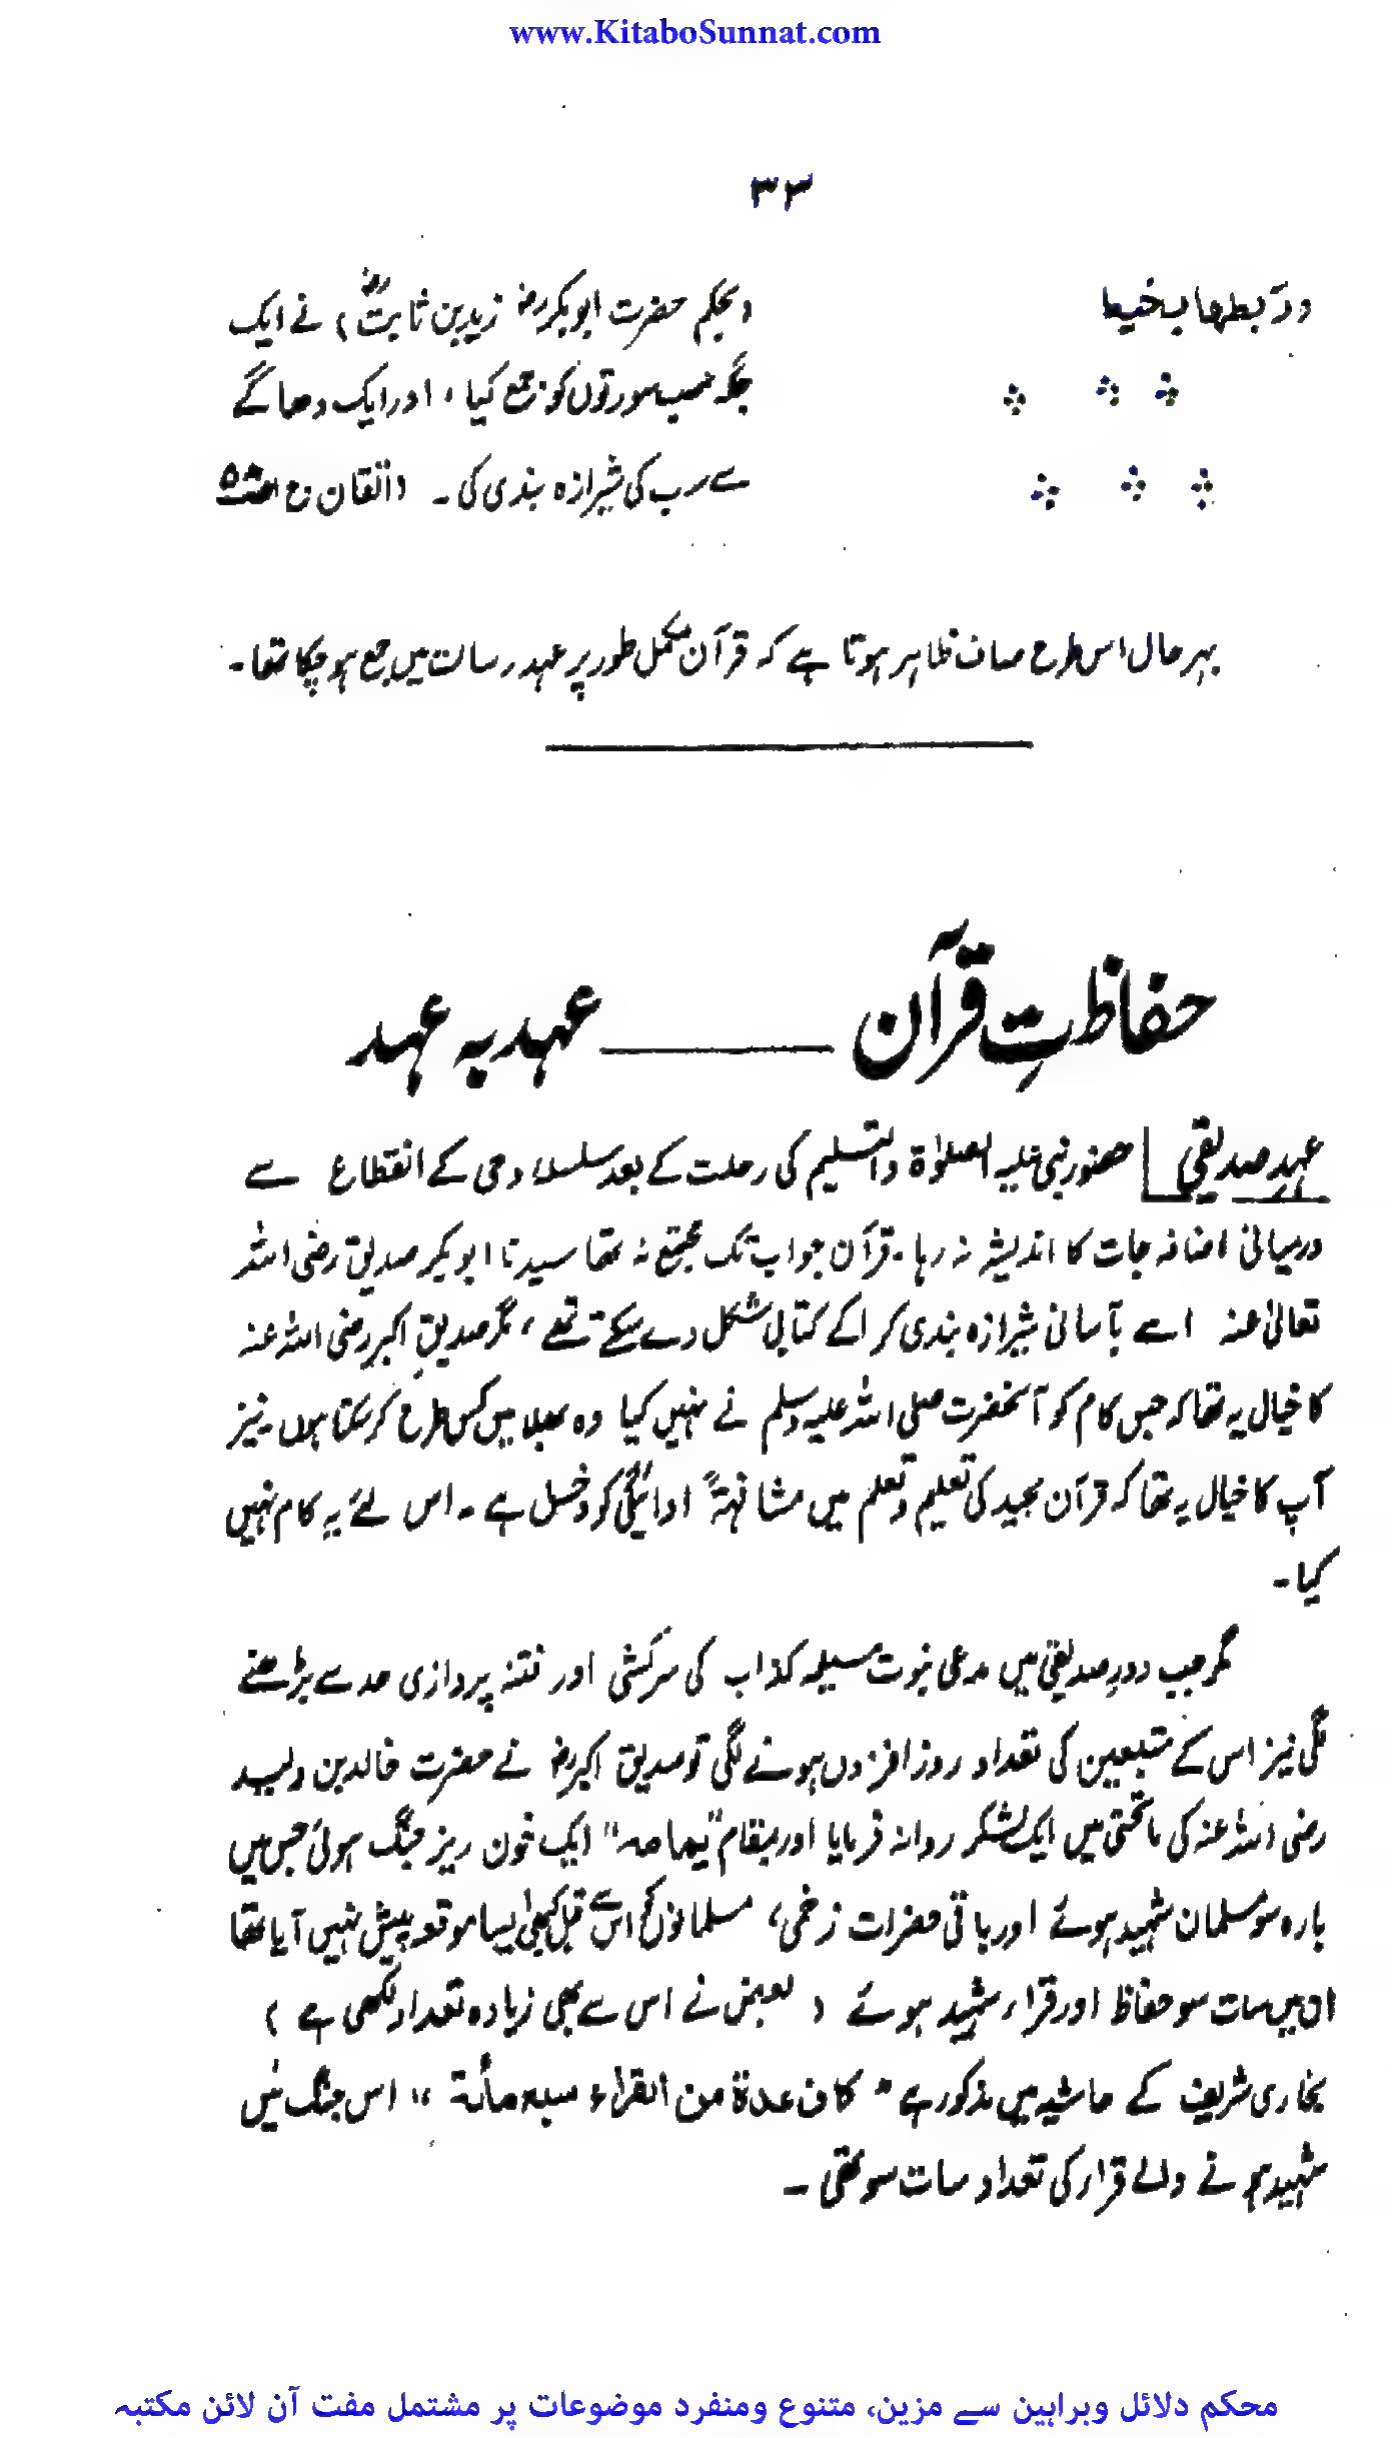 www.KitaboSunnat.com
۳۳
وربطھا بخیط
(بحکم حضرت ابوبکررض زیدبن ثابتؓ) نے ایک
جگہ سب سورتوں کو جمع کیا، اور ایک دھاگے
سے سب کی شیرازہ بندی کی۔ (اتقان ج۱
بہرحال اس طرح صاف ظاہر ہوتا ہے کہ قرآن مکمل طور پر عہد رسالت میں جمع ہو چکا تھا۔
حفاظتِ قرآن ــــــ عہد بہ عہد
عہد صدیقی | حضور نبی علیہ الصلوٰۃ والتسلیم کی رحلت کے بعد سلسلۂ وحی کے انقطاع سے
درمیانی اضافہ جات کا اندیشہ نہ رہا۔ قرآن جو اب تک مجتمع نہ تھا سیدنا ابوبکر صدیق رضی اللہ
تعالیٰ عنہ اسے بآسانی شیرازہ بندی کرا کے کتابی شکل دے سکتے تھے، مگر صدیقِ اکبر رضی اللہ عنہ
کا خیال یہ تھا کہ جس کام کو آنحضرت صلی اللہ علیہ وسلم نے نہیں کیا وہ بھلا میں کس طرح کر سکتا ہوں۔ نیز
آپ کا خیال یہ تھا کہ قرآن مجید کی تعلیم و تعلم میں مشافہۃً ادائیگی کو دخل ہے۔ اس لئے یہ کام نہیں
کیا۔
مگر جب دورِ صدیقی میں مدعی نبوت مسیلمہ کذاب کی سرکشی اور فتنہ پردازی حد سے بڑھنے
لگی نیز اس کے متبعین کی تعداد روز افزوں ہونے لگی تو صدیق اکبررض نے حضرت خالد بن ولید
رضی اللہ عنہ کی ماتحتی میں ایک لشکر روانہ فرمایا اور بمقام "یمامہ" ایک خون ریز جنگ ہوئی جس میں
بارہ سو مسلمان شہید ہوئے اور باقی حضرات زخمی، مسلمانوں کو اس سے قبل کبھی ایسا موقعہ پیش نہیں آیا تھا
ان میں سات سو حفاظ اور قراء شہید ہوئے (بعض نے اس سے بھی زیادہ تعداد لکھی ہے)
بخاری شریف کے حاشیہ میں مذکور ہے "کان عدۃ من القراء سبعمائۃ" اس جنگ میں
شہید ہونے والے قراء کی تعداد سات سو تھی۔
محکم دلائل وبراہین سے مزین، متنوع ومنفرد موضوعات پر مشتمل مفت آن لائن مکتبہ